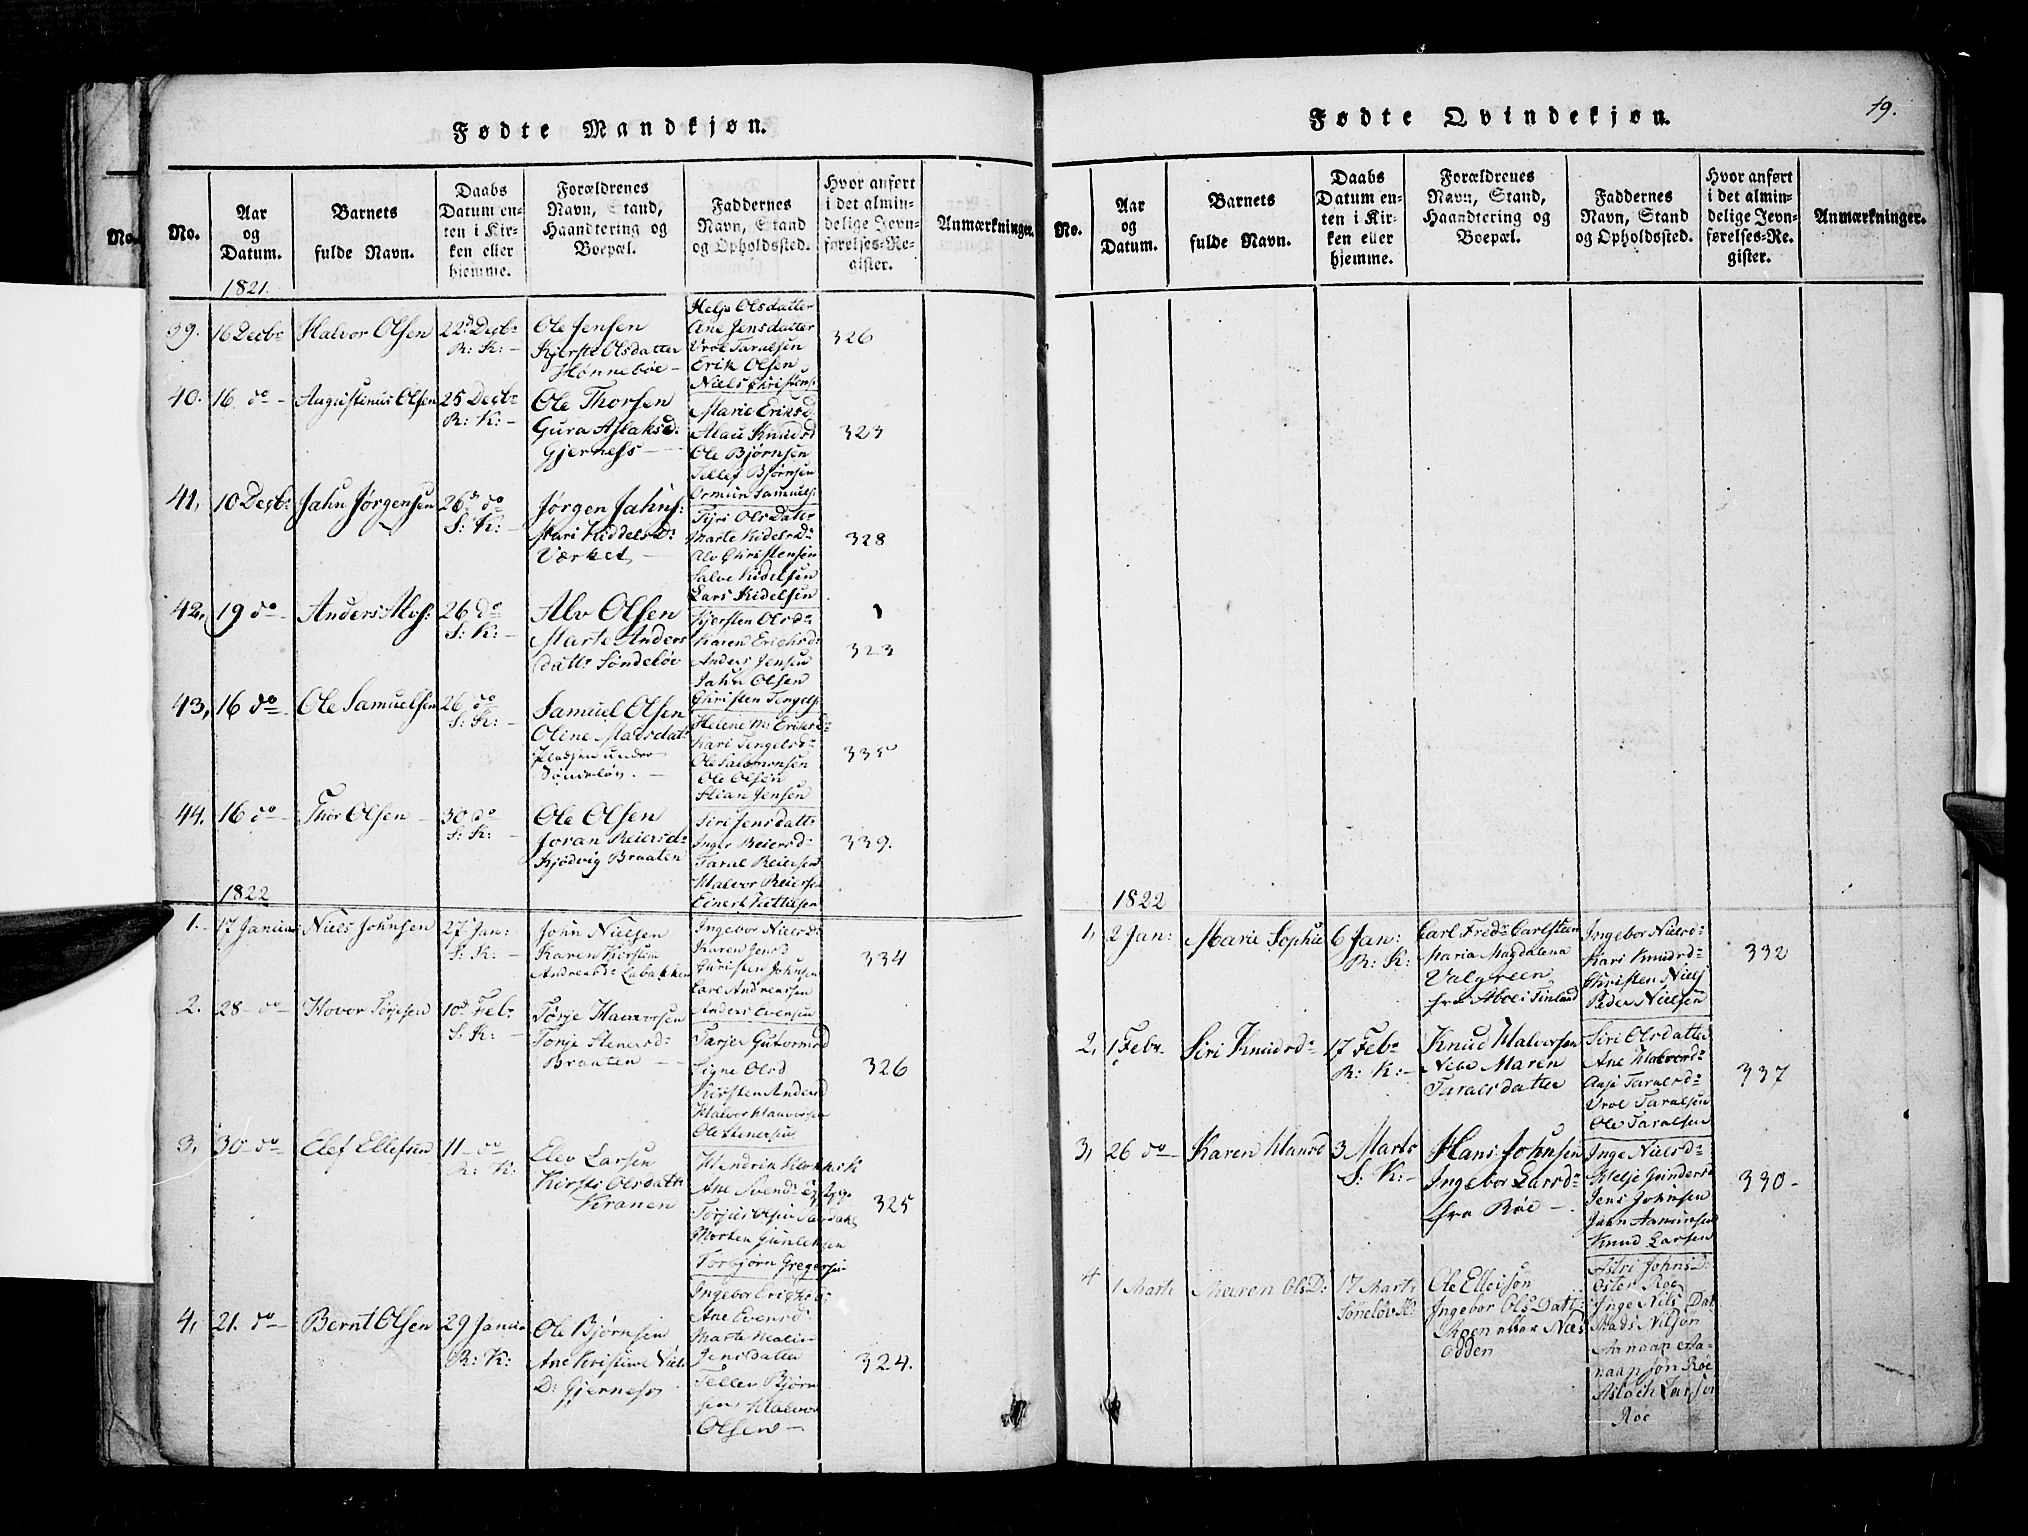 Fødte Mandkjøn.
No.
Aar
og
Datum.
Barnets
fulde Navn.
Daabs
Datum en-
ten i Kir-
ken eller
hjemme.
Forældrenes
Navn, Stand,
Haandtering og
Boepæl.
Faddernes
Navn, Stand
og Opholdssted.
Hvor anført
i det almin-
delige Jevn-
førelses-Re-
gister.
Anmærkninger.
1821.
39. 16 Decbr Halvor Olsen 22d Decbr
R: K: -
Ole Jensen
Kjersti Olsdatter
Hønnebøe -
Helje Olsdatter
Ane Jensdatter
Urol Taralsen
Erik Olsen
Niels Christens:
326
40. 16 do - Augustinus Olsen 25 Decbr
R: K: -
Ole Thorsen
Gura Aslaksd:
Gjerness -
Marie Eriksd
Knudsd
Ole Bjørnsen
Tellef Bjørnsen
Ormun Samuels:
323
41, 10 Decbr Jahn Jørgensen 26d do
S: K: -
Jørgen Jahns:
Mari Kiddelsd:
Værket -
Tyri Olsdatter
Marte Kidelsd:
Alv Christensen
Salve Kidelsen
Lars Kidelsen
328
42, 19 do - Anders Alvs: 26 do
S: K: -
Alv Olsen
Marte Anders
datter Søndeløv
Kjersten Olsd:
Karen Erichsd:
Anders Jensen
Jahn Olsen
Christen Tengels:
323
43, 16 do - Ole Samuelsen 26 do
S: K: -
Samuel Olsen
Oline Madsdatr
Pladsen under
Søndeløv. -
Helene M: Eriksd:
Kari Tengelsd:
Ole Salomonsen
Ole Olsen
Stian Jensen
335
44. 16 do - Thor Olsen - 30 do
S: K: -
Ole Olsen
Joran Reiersd:
Kjødvig Braaten
Siri Jensdattr
Inger Reiersd:
Taral Reiersen
Halvor Reiersen
339.
1822
1. 17 Januar Niels Johnsen 27 Jan:
S: K: -
John Nielsen
Karen Kirstin
Ingebor Nielsd:
Karen Jensd
Christen Johnsen
Carl Andreassen
Anders Evensen
334
2. 28 do - Hovor Tørjesen 10d Febr
S: K: -
Tørje Haavorsen
Tonje Stenersd:
Braaten -
Tarjer Gutormsd
Signe Olsd
Kirsten Andersd
Halvor Haavorsen
Ole Stenersen
326
3, 30 do Elef Ellefsen 11 do
R: K:
Elev Larsen
Kirsti Olsdattr
Kranen
Ane Svensd:
Morten Gunleksen
Torbjørn Gregersen
325
4, 21. do - Bernt Olsen 29 Januar
R: K:
Ole Bjørnsen
Ane Kristine Niels
D: Gjerness
Ingebor Erichsd:
Ane Evensd:
Marte Malie
Jensdatter
Tellev Bjørn
sen, Halvor
Olsen -
324.
Fødte Qvindekjøn.
19.
No.
Aar
og
Datum.
Barnets
fulde Navn.
Daabs
Datum en-
ten i Kir-
ken eller
hjemme.
Forældrenes
Navn, Stand,
Haandtering og
Boepæl.
Faddernes
Navn, Stand
og Opholdssted.
Hvor anført
i det almin-
delige Jevn-
førelses-Re-
gister.
Anmærkninger.
1822
1, 2 Jan: Marie Sophie 6 Jan:
R: K:
Carl Fredr Carlsteen
Maria Magdalena
Valgreen
fra Aboe i Finland
Ingebor Nielsd:
Kari Knudsd:
Christen Niels
Peder Nielsen
332
2, 1 Febr Siri Knudsd: 17 Febr
R: K: -
Knud Halvorsen
Maren
Taralsdatter
Siri Olsdatter
Ane Halvorsd:
Aasi Taralsd:
Urol Taralsen
Ole Taralsen
337
3, 26 do - Karen Hansd 3 Marts
S: K: -
Hans Johnsen
Ingebor Larsd:
fra Røe -
Inge Nielsd:
Helje Gundersd
Jens Johnsen
John Aamunsen
Knud Larsen
330 -
4 1 Marts Maren OlsD: 17 Marts
Søneløv K:
Ole Ellefsøn
Ingebor OlsDatt:
Roen eller Næs
odden
Astri JohnsD:
Øster Røe
Inge Nils Dat
Mads Nilsøn
Aanaan Aa-
naansøn Røe
Aslach Larsøn
Røe